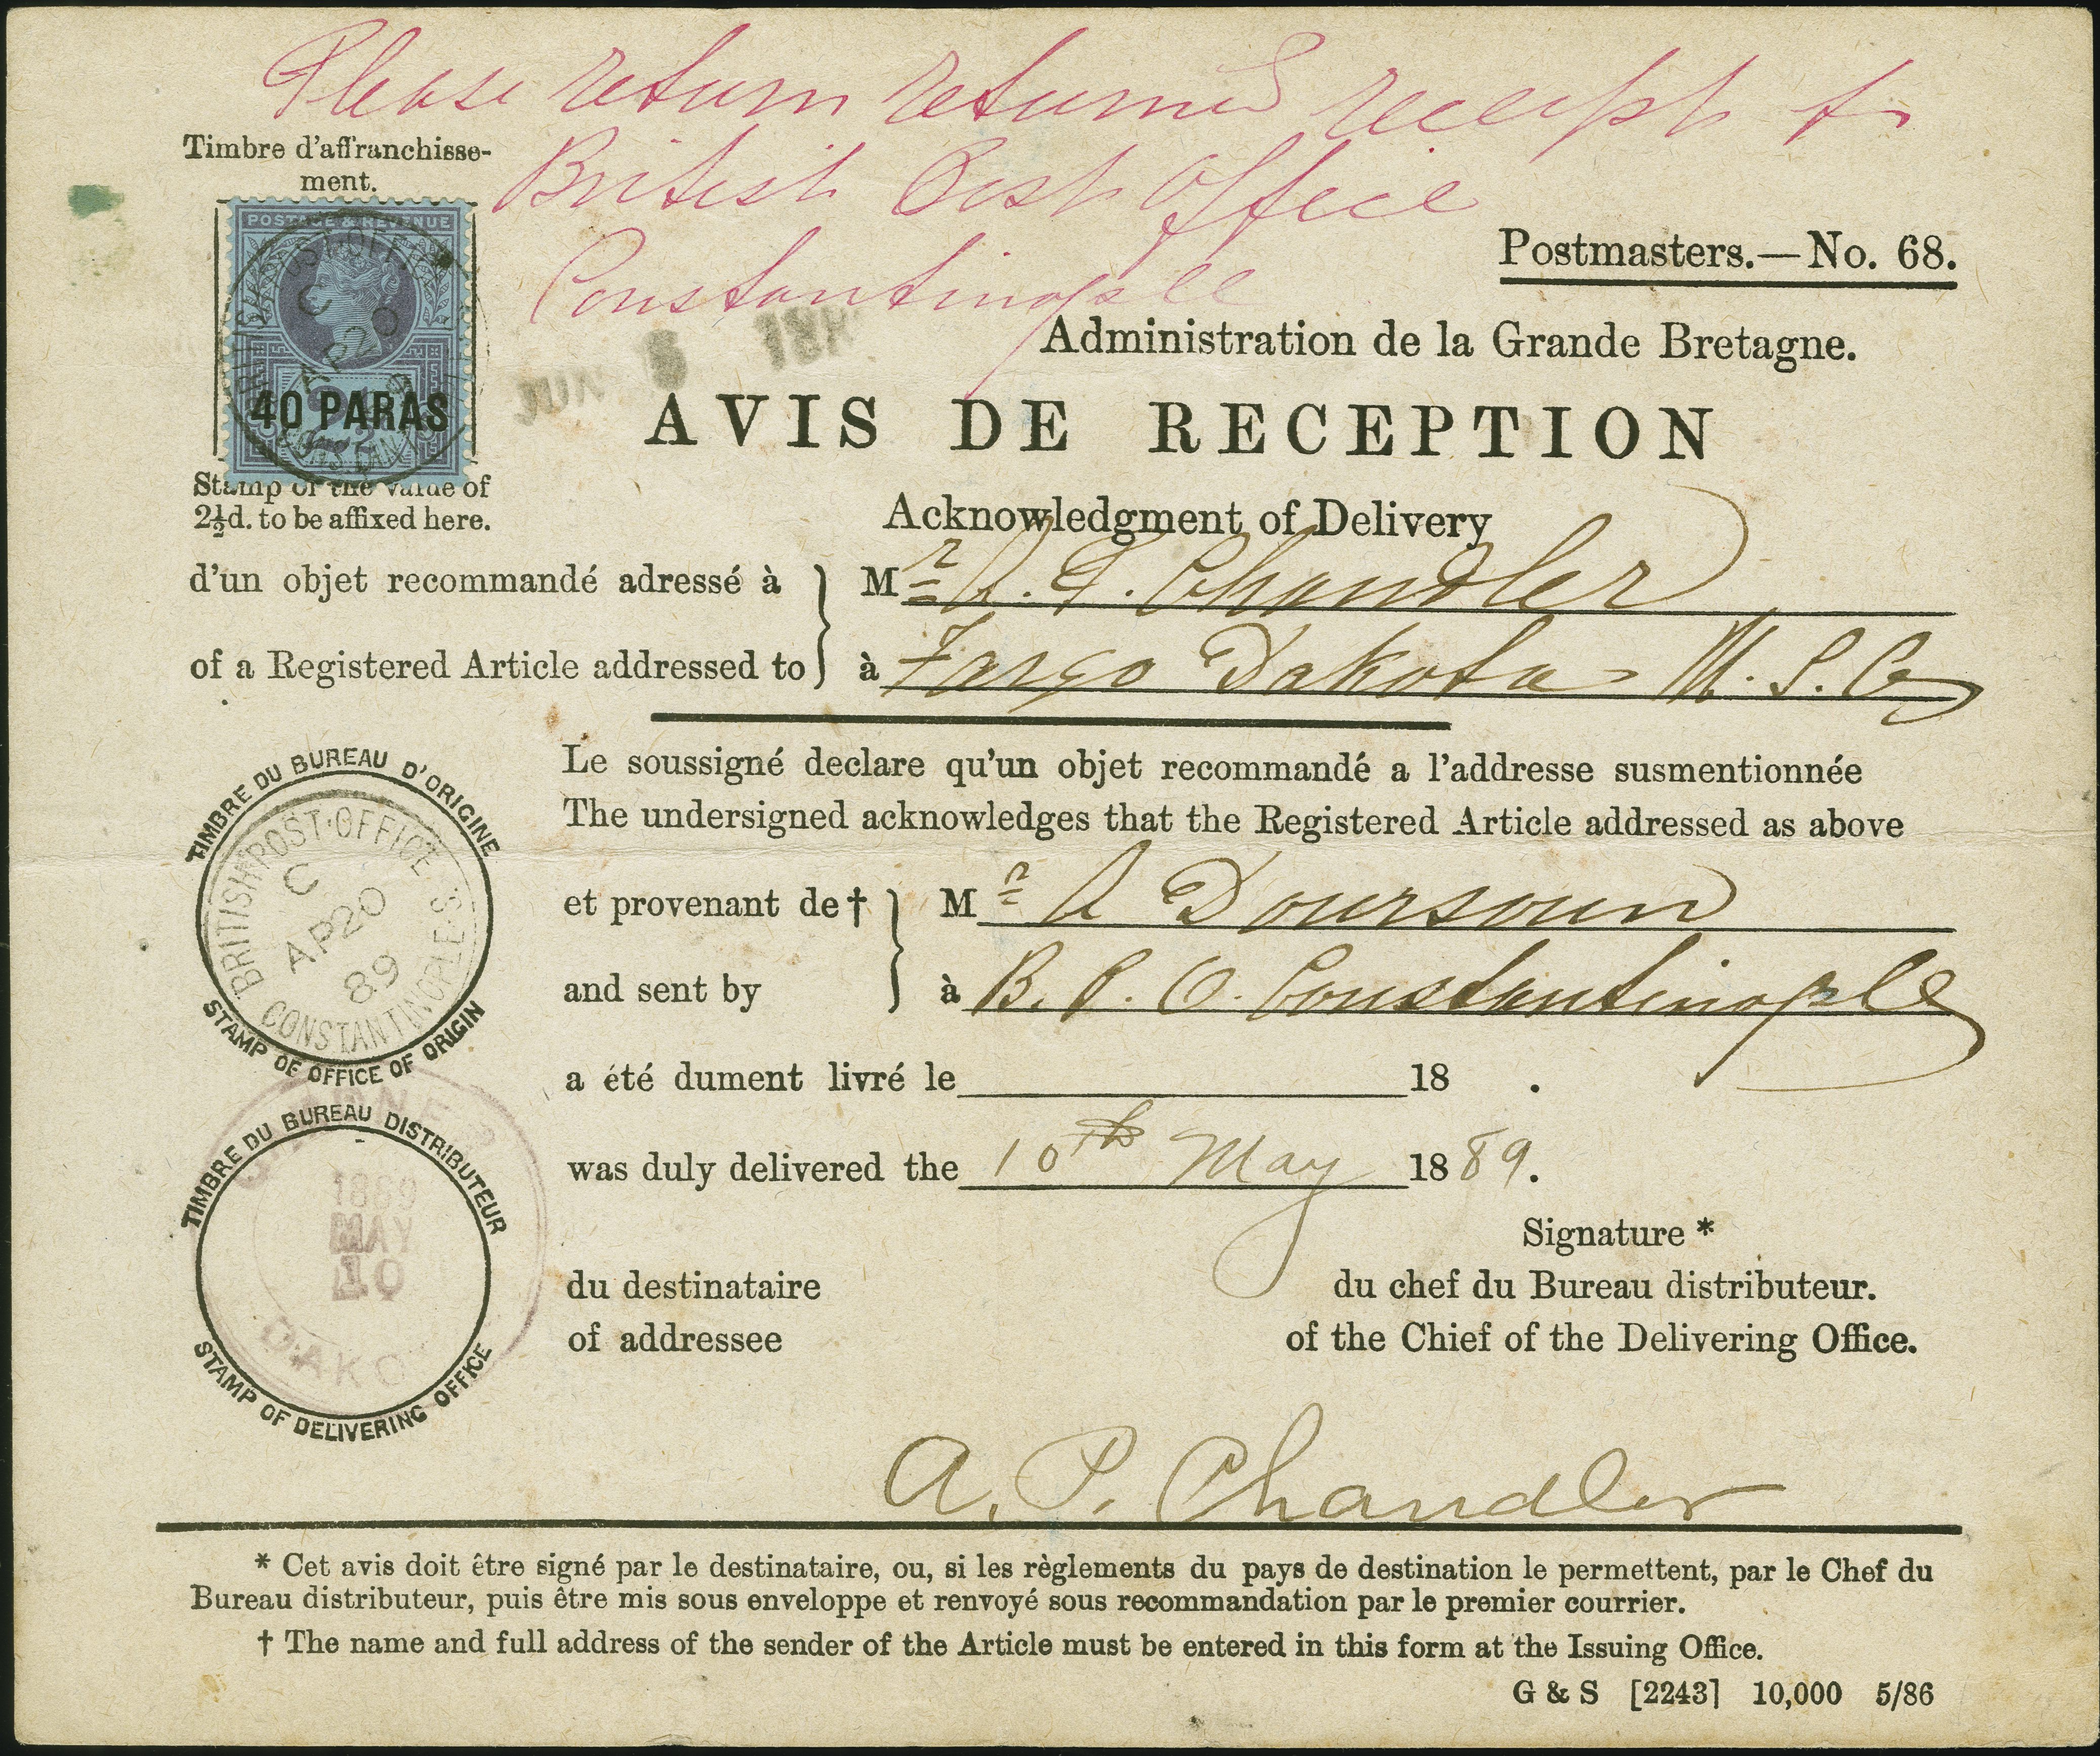 Please return returned receipt to
British Post Office
Constantinople
Timbre d'affranchisse-
ment.
POSTAGE & REVENUE
40 PARAS
Stamp of the value of
2½d. to be affixed here.
JUN 5 18
Postmasters.—No. 68.
Administration de la Grande Bretagne.
AVIS DE RECEPTION
Acknowledgment of Delivery
d'un objet recommandé adressé à
of a Registered Article addressed to
Mr A. P. Chandler
à Fargo Dakota
Le soussigné declare qu'un objet recommandé a l'addresse susmentionnée
The undersigned acknowledges that the Registered Article addressed as above
et provenant de † Mr A Doursoun
and sent by à B. P. O. Constantinople
a été dument livré le 18 .
was duly delivered the 10th May 1889.
TIMBRE DU BUREAU D'ORIGINE
BRITISH POST·OFFICE
C
AP 20
89
CONSTANTINOPLE·S.
STAMP OF OFFICE OF ORIGIN
TIMBRE DU BUREAU DISTRIBUTEUR
1889
MAY
10
DAKO
STAMP OF DELIVERING OFFICE
Signature *
du destinataire du chef du Bureau distributeur.
of addressee of the Chief of the Delivering Office.
A. P. Chandler
* Cet avis doit être signé par le destinataire, ou, si les règlements du pays de destination le permettent, par le Chef du
Bureau distributeur, puis être mis sous enveloppe et renvoyé sous recommandation par le premier courrier.
† The name and full address of the sender of the Article must be entered in this form at the Issuing Office.
G & S [2243] 10,000 5/86